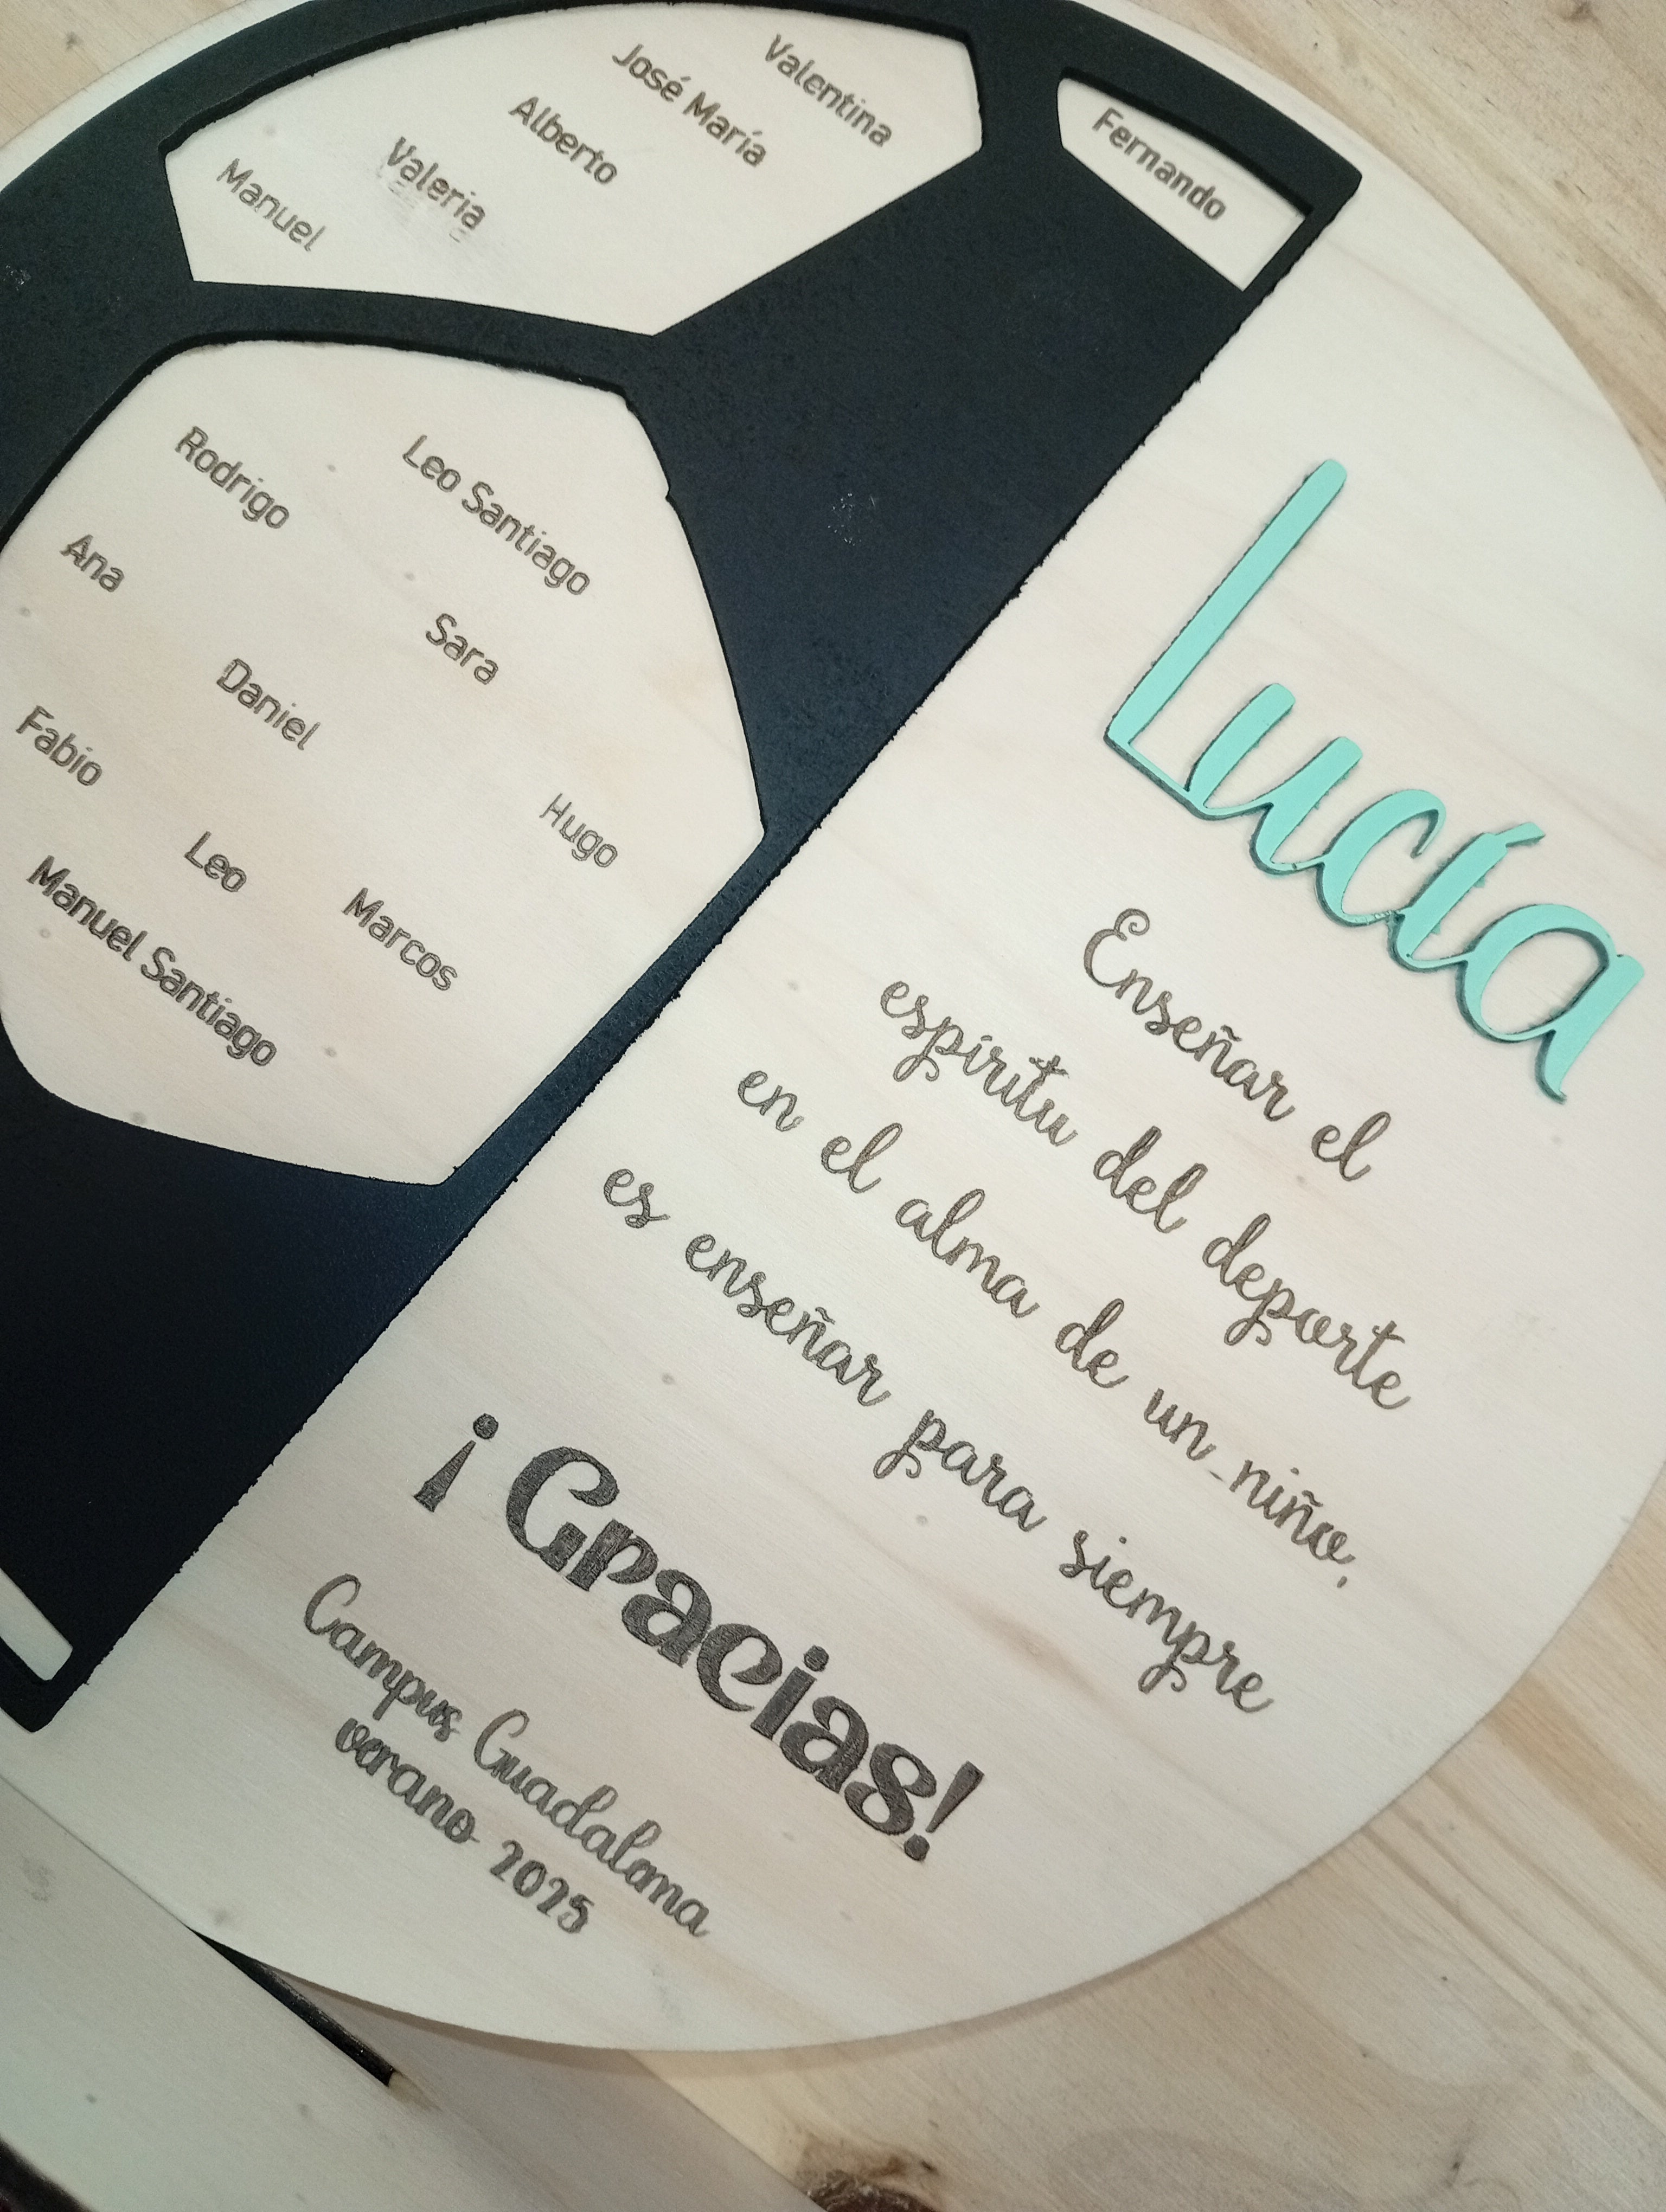 Valentina
José María
Alberto
Valeria
Manuel
Fernando
Leo Santiago
Rodrigo
Ana
Sara
Daniel
Fabio
Hugo
Leo
Marcos
Manuel Santiago
Lucía
Enseñar el
espíritu del deporte
en el alma de un niño,
es enseñar para siempre
¡Gracias!
Campus Guadalma
verano 2025